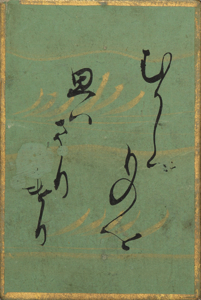 むかしハものを
思ハさりけり